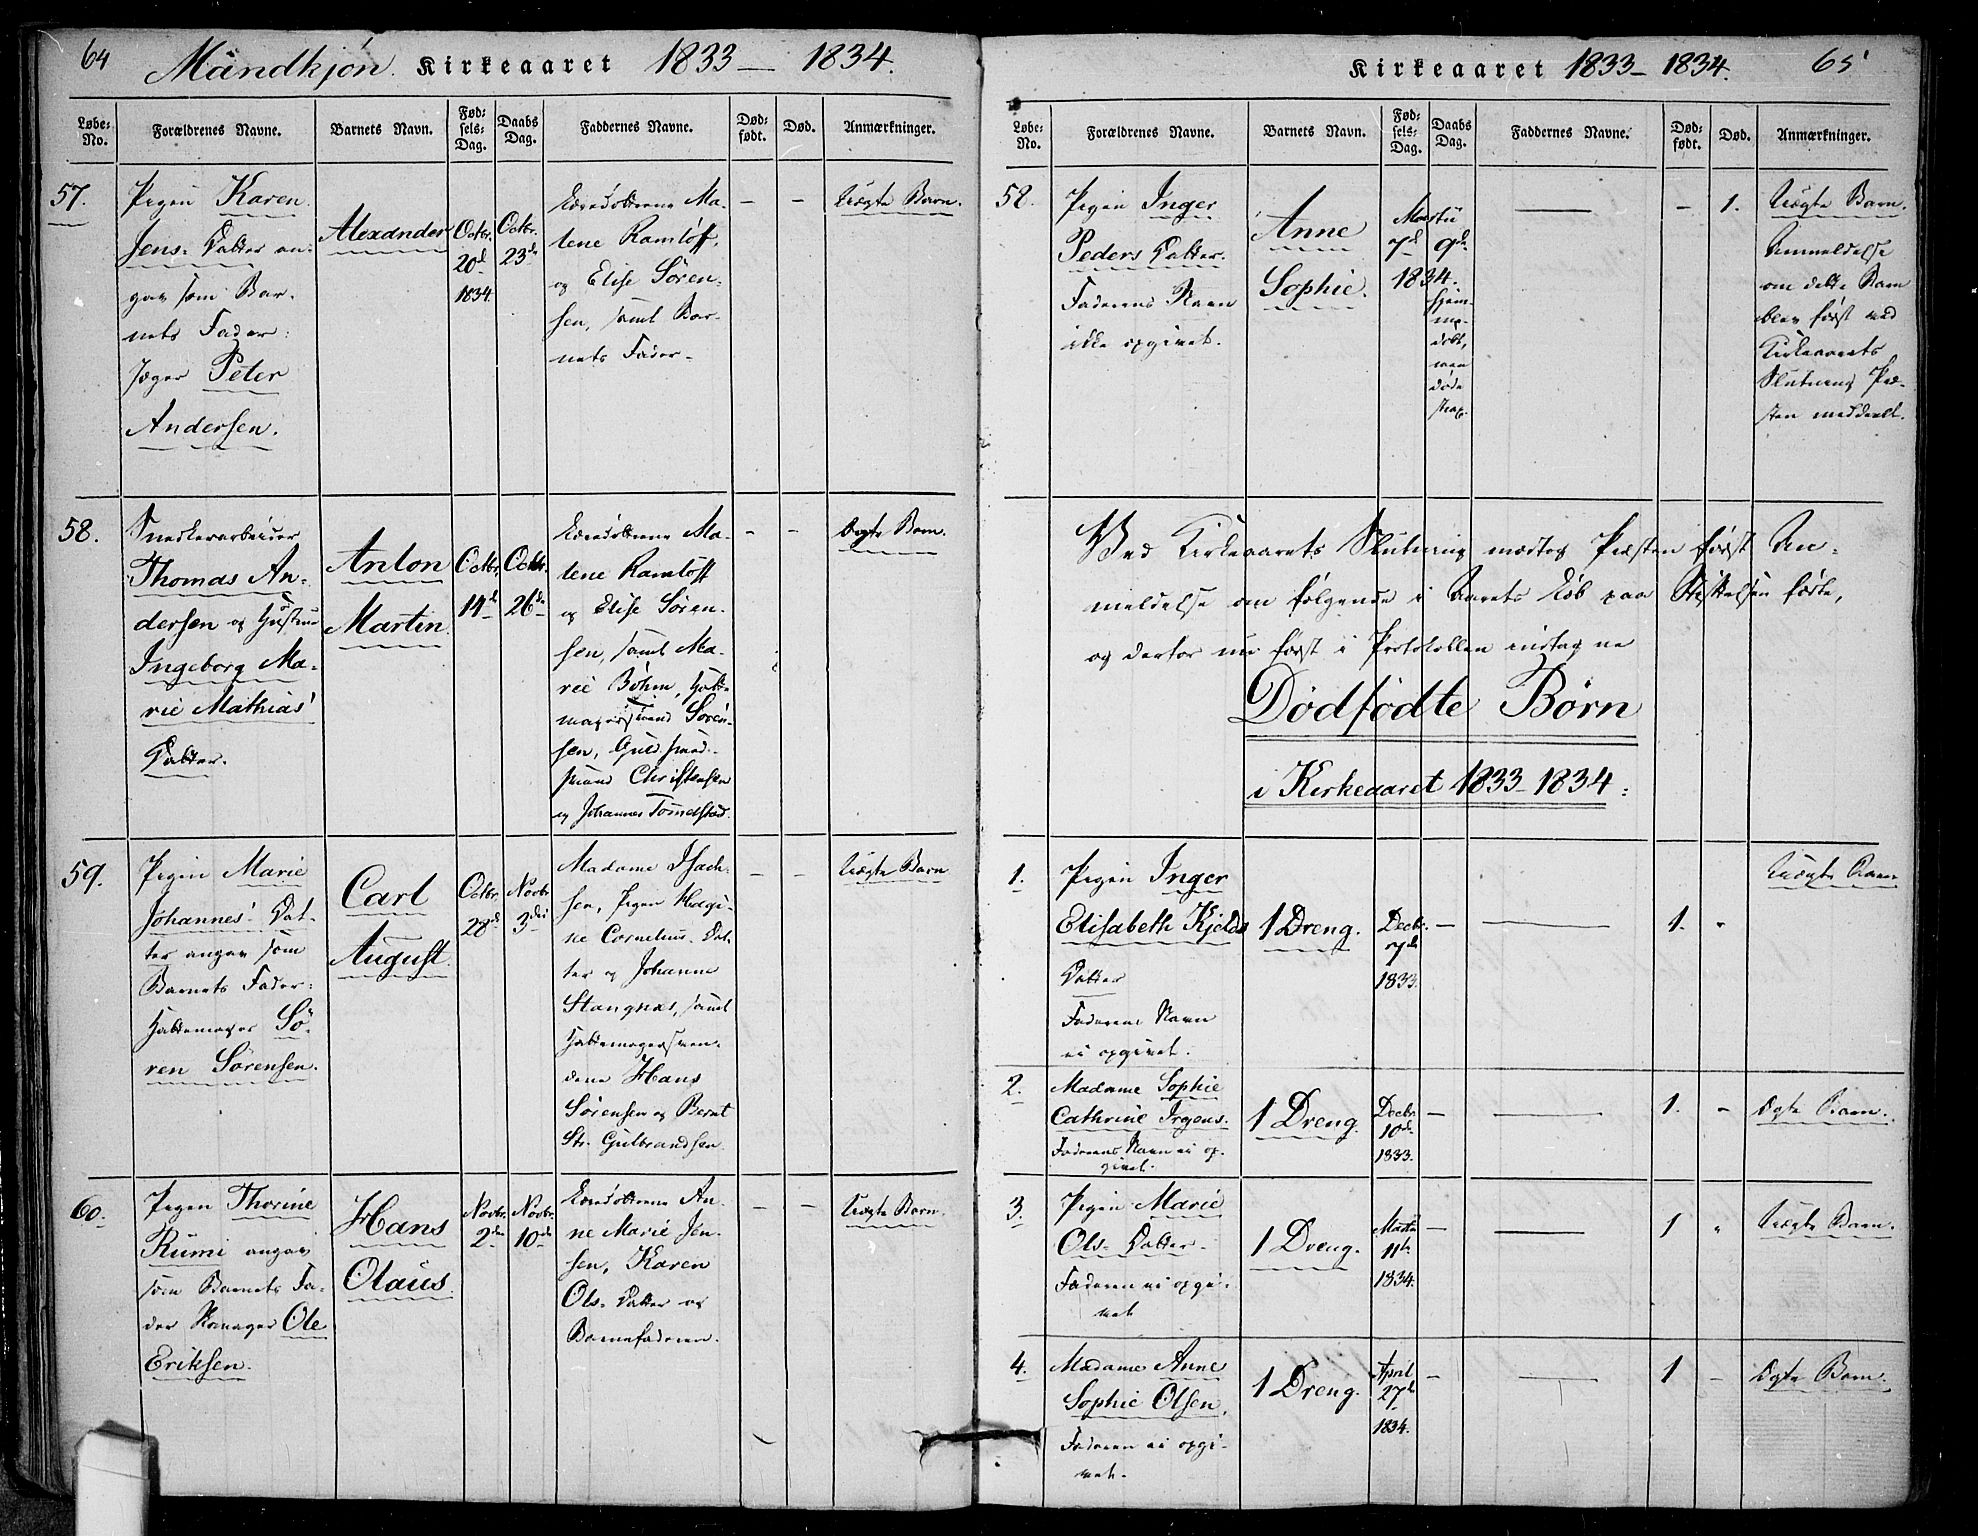 64 Mandkjøn. Kirkeaaret 1833 — 1834.
Løbe-No.
Forældrenes Navne.
Barnets Navn.
Fødsels-Dag.
Daabs Dag.
Faddernes Navne.
Dødfødt.
Død.
Anmærkninger.
57.
Pigen Karen
Jens-Datter an-
gav som Bar-
nets Fader:
Jæger Peter
Andersen.
Alexander
Octbr.
20d
1834.
Octbr.
23de
Ma-
lene Ramløff,
og Elise Sören-
sen, samt Bar-
nets Fader.
–
–
Uægte Barn.
58.
Snedkerarbeider
Thomas An-
dersen og Hustrue
Ingeborg Ma-
rie Mathias'
Datter.
Anton
Martin.
Octbr.
14d
Octbr.
26de
Ma-
lene Ramløff
og Elise Sören-
sen, samt Ma-
rie Böhm,
Sören-
sen, Guldsmed-
svend Christensen
og Johannes Tomelstad.
–
–
Ægte Barn.
59.
Pigen Marie
Johannes' Dat-
ter angav som
Barnets Fader:
Hattemager Sö-
ren Sørensen.
Carl
August.
Octbr.
28d
Novbr.
3die
Madame Isach-
sen, Pigen Regi-
ne Cornelius-Dat-
ter og Johanne
Stangnæs, samt
Hattemagersven-
dene Hans
Sörensen og Bernt
Str. Gulbrandsen.
–
–
Uægte Barn
60.
Pigen Thorine
Rumi angav
som Barnets Fa-
der Ole
Eriksen.
Hans
Olaus.
Novbr.
2den
Novbr.
10de
An-
ne Marie Jen-
sen, Karen
Ols-Datter og
Barnefaderen.
–
–
Uægte Barn.
Kirkeaaret 1833 – 1834. 65
Løbe-No.
Forældrenes Navne.
Barnets Navn.
Fødsels-Dag.
Daabs Dag.
Faddernes Navne.
Dødfødt.
Død.
Anmærkninger.
58.
Pigen Inger
Peders Datter.
Faderens Navn
ikke opgivet.
Anne
Sophie.
Martii
7d 9de
1834.
hjem-
me-
døbt,
men
døde
strax.
—
–
1.
Uægte Barn.
Anmeldelse
om dette Barn
blev først ved
Kirkeaarets
Slutning Præ-
sten meddeelt.
Ved Kirkeaarets Slutning modtog Præsten først An-
meldelse om følgende i Aarets Løb paa Stiftelsen fødte,
og derfor nu først i Protokollen indtagne
Dödfödte Börn
i Kirkeaaret 1833–1834:
1.
Pigen Inger
Elisabeth Kjelds
Datter
Faderens Navn
ei opgivet.
1 Dreng.
Decbr.
7de
1833.
–
—
1.
"
Uægte Barn
2.
Madame Sophie
Cathrine Irgens.
Faderens Navn ei op-
givet.
1 Dreng.
Decbr.
10de
1833.
–
—
1.
–
Ægte Barn.
3.
Pigen Marie
Ols-Datter.
Faderen ei opgi-
vet
1 Dreng.
Martii
11te
1834.
–
—
1
"
Uægte Barn.
4.
Madame Anne
Sophie Olsen.
Faderen ei opgi-
vet.
1 Dreng.
April
27de
1834.
–
—
1
–
Ægte Barn.